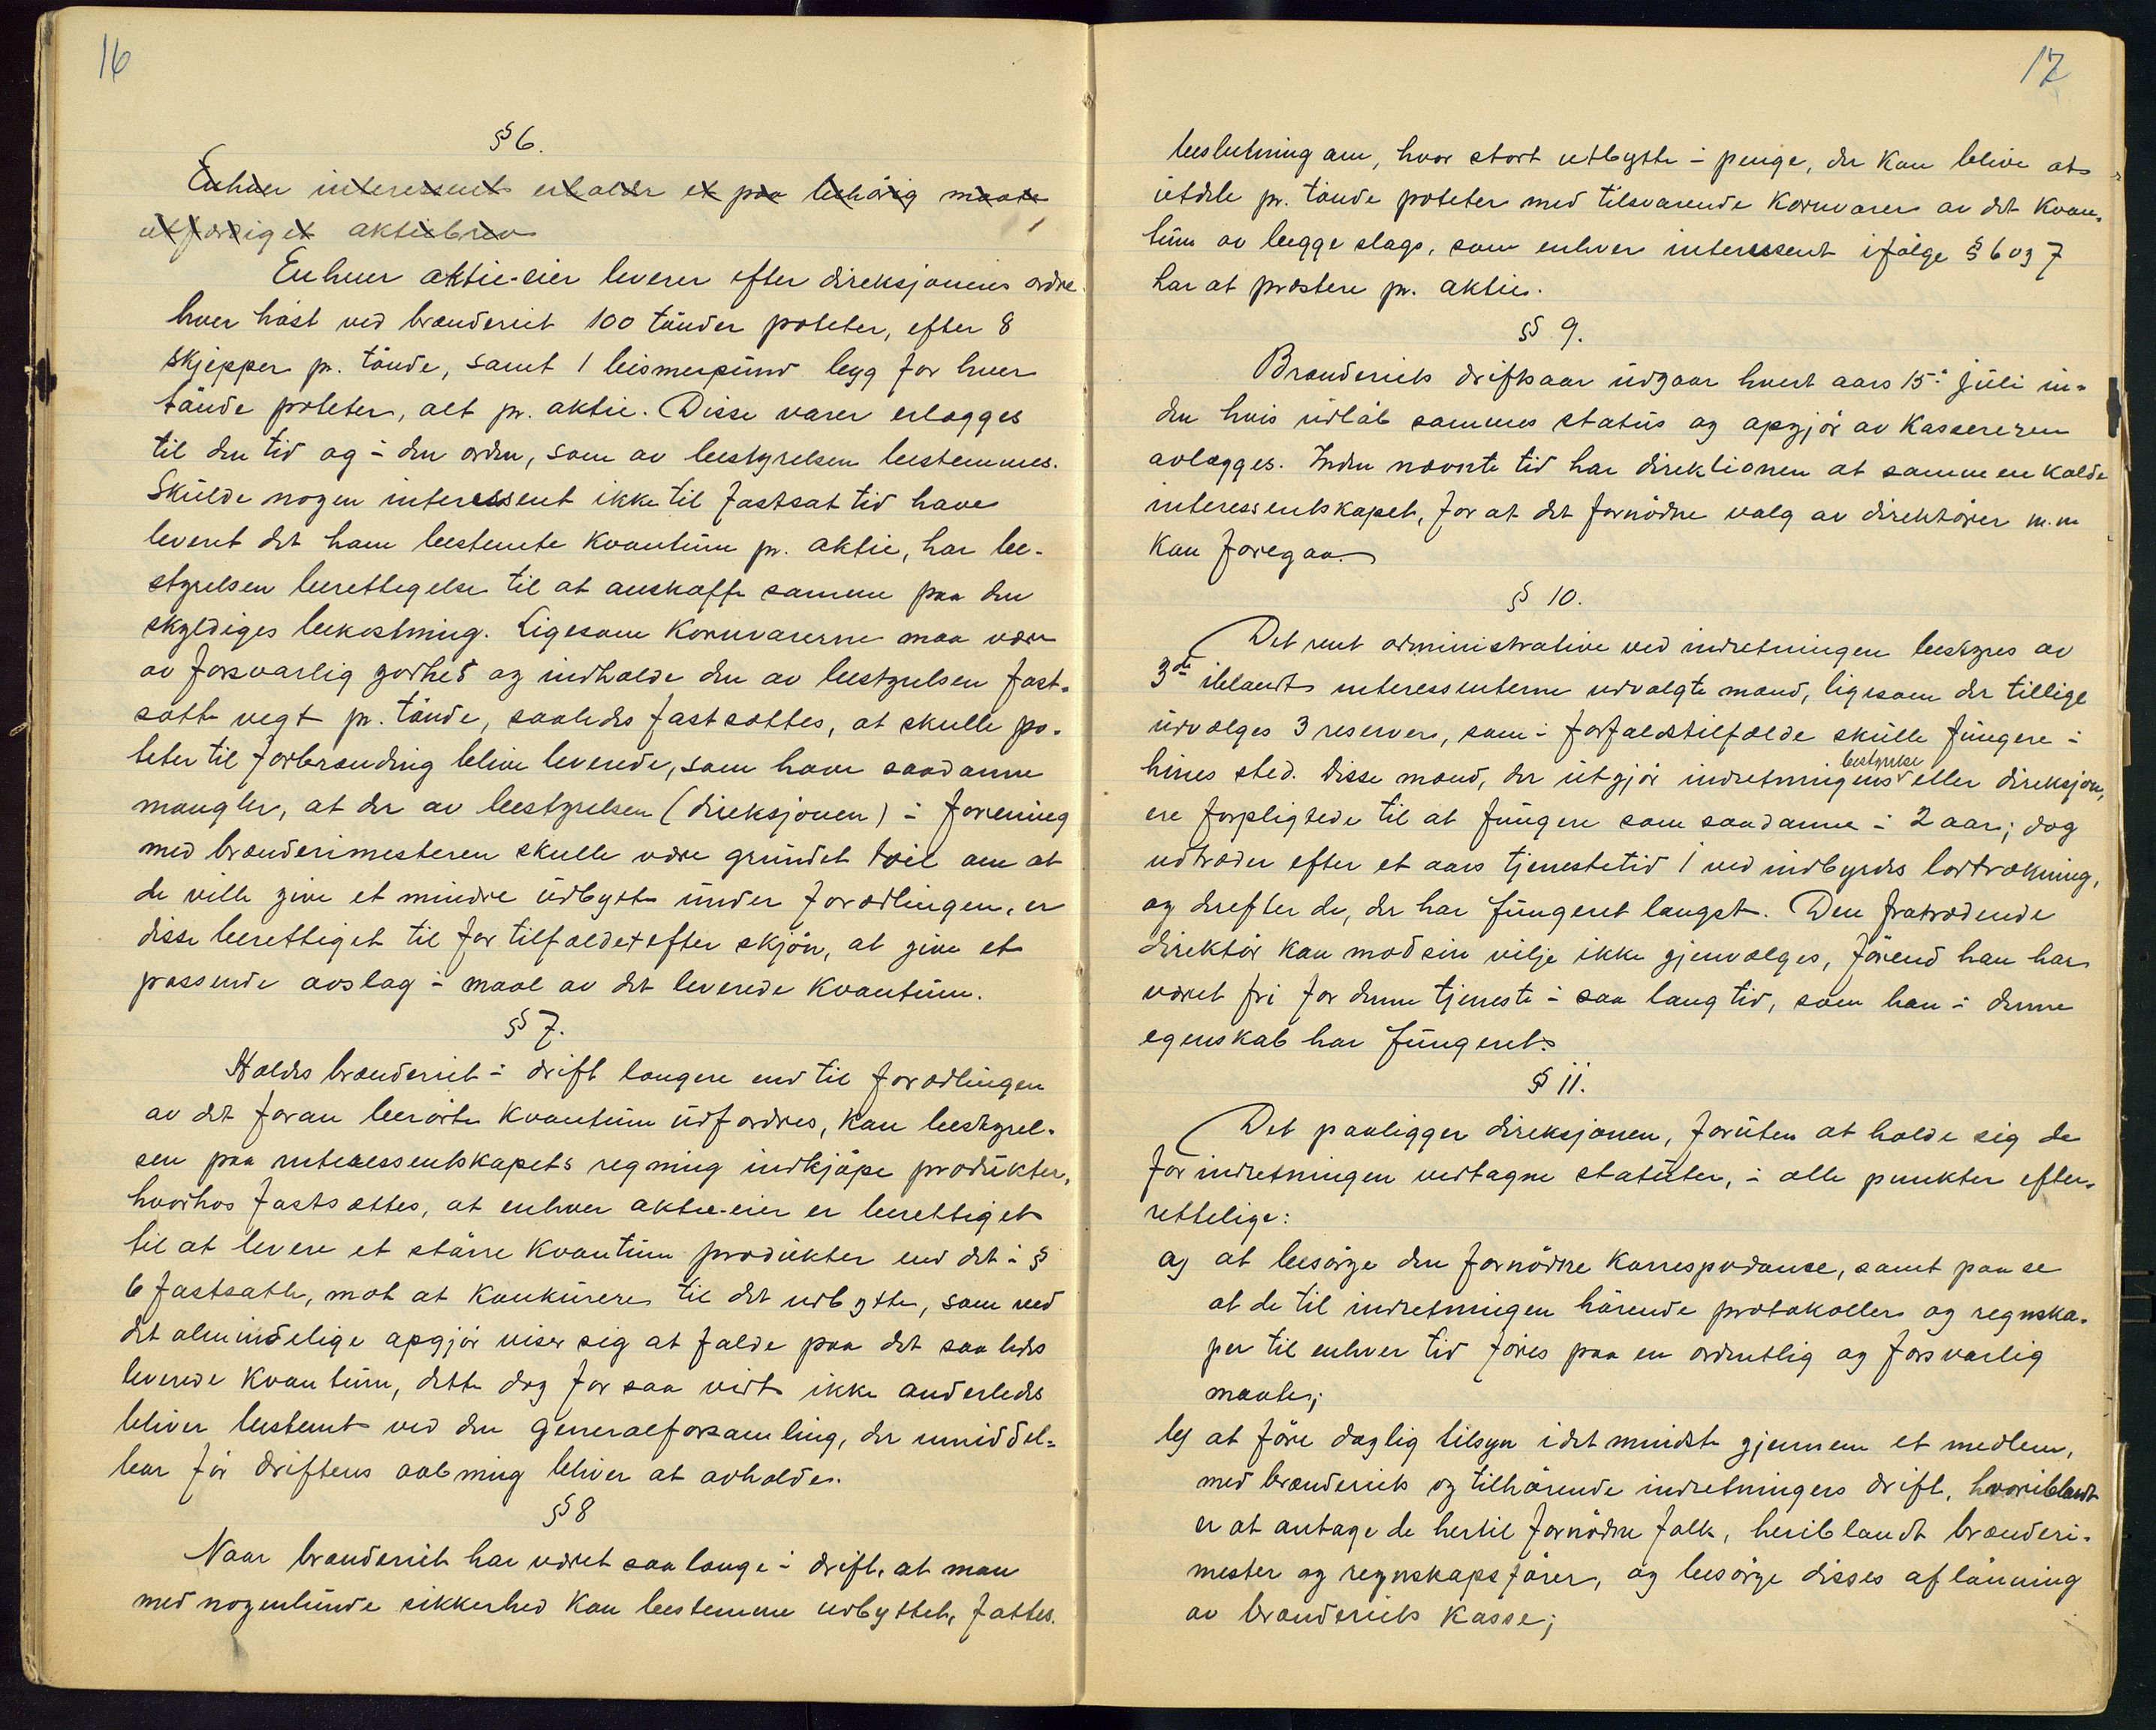 16
§ 6.
Enhver interessent erholder et paa behörig maate
utfærdiget aktiebrev
Enhver aktie-eier leverer efter direksjonens ordre
hver höst ved brænderiet 100 tönder poteter, efter 8
skjepper pr. tönde, samt 1 bismerpund byg for hver
tönde poteter, alt pr. aktie. Disse varer erlægges
til den tid og i den orden, som av bestyrelsen bestemmes.
Skulde nogen interessent ikke til fastsat tid have
leveret det ham bestemte kvantum pr. aktie, har be-
styrelsen berettigelse til at anskaffe samme paa den
skyldiges bekostning. Ligesom kornvarerne maa være
av forsvarlig godhet og indholde den av bestyrelsen fast-
satte vegt pr. tönde, saaledes fastsættes, at skulle po-
teter til forbrænding blive leverede, som have saadanne
mangler, at der av bestyrelsen (direksjonen) i forening
med brænderimesteren skulle være grundet tvil om at
de ville give et mindre udbytte under forædlingen, er
disse berettiget til for tilfældet efter skjön, at give et
passende avslag i maal av det leverede kvantum.
§ 7.
Holdes brænderiet i drift længere end til forædlingen
av det foran berörte kvantum udfordres, kan bestyrel-
sen paa interessentskapets regning indkjöpe produkter,
hvorhos fastsættes, at enhver aktie-eier er berettiget
til at levere et större kvantum produkter end det i §
6 fastsatte, mot at konkurere til det udbytte, som ved
det almindelige opgjör viser sig at falde paa det saaledes
leverede kvantum, dette dog for saa vidt ikke anderledes
bliver bestemt ved den generalforsamling, der umiddel-
bar för driftens aabning bliver at avholde.
§ 8
Naar brænderiet har været saa længe i drift, at man
med nogenlunde sikkerhed kan bestemme udbyttet, fattes
17
beslutning om, hvor stort utbytte i penge, der kan blive at
utdele pr. tönde poteter med tilsvarende kornvarer av det kvan-
tum av begge slags, som enhver interessent ifölge § 6 og 7
har at præstere pr. aktie.
§ 9.
Brænderiets driftsaar udgaar hvert aars 15. juli in-
den hvis udlöb sammes status og opgjör av kassereren
avlægges. Inden nævnte tid har direktionen at sammenkalde
interessentskapet, for at det fornödne valg av direktörer m.m
kan foregaa.
§ 10.
Det rent administrative ved indretningen bestyres av
3de iblandt interessenterne udvalgte mænd, ligesom der tillige
udvælges 3 reserver, som i forfaldstilfælde skulle fungere i
hines sted. Disse mænd, der utgjör indretningens bestyrelse eller direksjon,
ere forpligtede til at fungere som saadanne i 2 aar; dog
udtræder efter et aars tjenestetid 1 ved indbyrdes lodtrækning,
og derefter de, der har fungeret længst. Den fratrædende
direktör kan mod sin vilje ikke gjenvælges, förend han har
været fri for denne tjeneste i saa lang tid, som han i denne
egenskab har fungeret.
§ 11.
Det paaligger direksjonen, foruten at holde sig de
for indretningen vedtagne statuter, i alle punkter efter-
rettelige:
a) at besörge den fornödne korrespodanse, samt paase
at de til indretningen hörende protokoller og regnska-
per til enhver tid föres paa en ordentlig og forsvarlig
maate;
b) at före daglig tilsyn idet mindste gjennem et medlem,
med brænderiets og tilhörende indretningers drift, hvoriblandt
er at antage de hertil fornödne folk, heriblandt brænderi-
mester og regnskapsförer, og besörge disses aflönning
av brænderiets kasse;